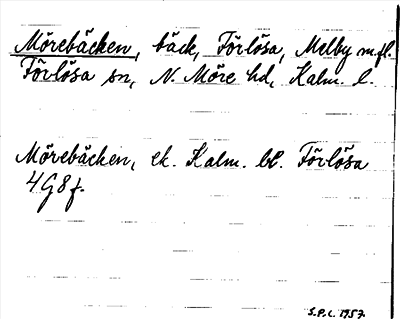 Mörebäcken, bäck, Förlösa, Melby m.fl.
Förlösa sn, N. Möre hd, Kalm. l.
Mörebäcken, ek. Kalm. bl. Förlösa
4G8f.
S.P.L. 1957